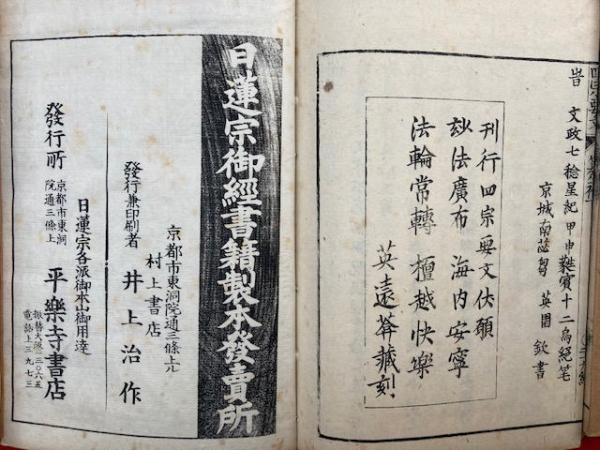 旹 文政七稔星紀甲申蕤賓十二烏絕笔
京城南 英園 欽書
刊行四宗要文伏願
玅法廣布 海内安寧
法輪常轉 檀越快樂
英遠莽藏刻
日蓮宗御經書籍製本發賣所
京都市東洞院通三條上ル
村上書店
發行兼印刷者 井上治作
日蓮宗各派御本山御用達
發行所 京都市東洞院通三條上 平樂寺書店
振替大阪二三〇六五
電話上三九七三